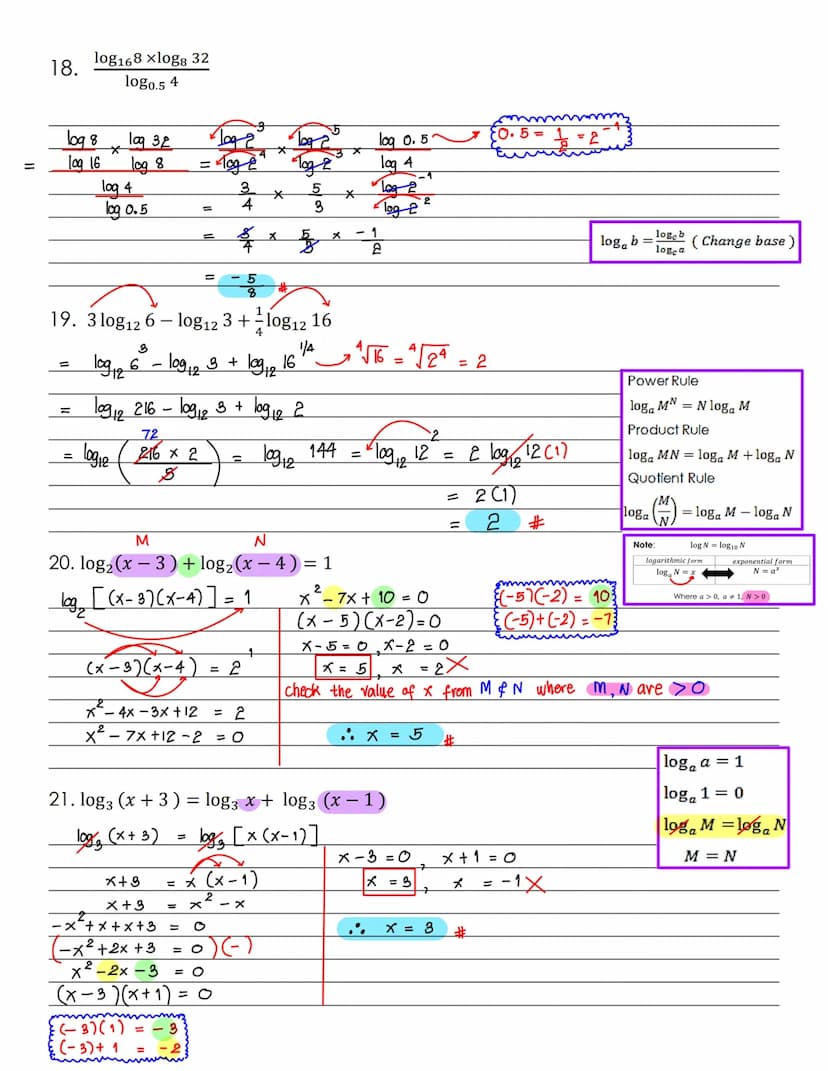 18. log₁₆8 ×log₈ 32 / log₀.₅ 4
= (log 8 / log 16 × log 32 / log 8) / (log 4 / log 0.5) = log 2³ / log 2⁴ × log 2⁵ / log 2³ × log 0.5 / log 4
0.5 = 1/2 = 2⁻¹
= 3/4 × 5/3 × log 2⁻¹ / log 2²
= 3/4 × 5/3 × -1/2
logₐ b = log꜀b / log꜀a ( Change base )
= -5/8 #
19. 3 log₁₂ 6 − log₁₂ 3 + 1/4 log₁₂ 16
= log₁₂ 6³ - log₁₂ 3 + log₁₂ 16^1/4 → ⁴√16 = ⁴√2⁴ = 2
= log₁₂ 216 - log₁₂ 3 + log₁₂ 2
72
= log₁₂ (216 × 2 / 3) = log₁₂ 144 = log₁₂ 12² = 2 log₁₂ 12 (1)
= 2(1)
= 2 #
Power Rule
logₐ Mᴺ = N logₐ M
Product Rule
logₐ MN = logₐ M + logₐ N
Quotient Rule
logₐ (M/N) = logₐ M − logₐ N
M N
20. log₂(x − 3) + log₂(x − 4) = 1
Note: log N = log₁₀ N
logarithmic form exponential form
logₐ N = x N = aˣ
Where a > 0, a ≠ 1, N > 0
log₂ [(x-3)(x-4)] = 1
(x-3)(x-4) = 2¹
x² - 4x - 3x + 12 = 2
x² - 7x + 12 - 2 = 0
x² - 7x + 10 = 0
(x - 5)(x-2) = 0
x - 5 = 0 , x - 2 = 0
x = 5 , x = 2 ×
(-5)(-2) = 10
(-5)+(-2) = -7
check the value of x from M & N where M, N are > 0
∴ x = 5 #
21. log₃ (x + 3) = log₃ x + log₃ (x − 1)
log₃ (x+3) = log₃ [x(x-1)]
x+3 = x (x-1)
x+3 = x² - x
-x² + x + x + 3 = 0
(-x² + 2x + 3 = 0)(-)
x² - 2x - 3 = 0
(x - 3)(x + 1) = 0
(-3)(1) = -3
(-3) + 1 = -2
x - 3 = 0 , x + 1 = 0
x = 3 , x = -1 ×
∴ x = 3 #
logₐ a = 1
logₐ 1 = 0
logₐ M = logₐ N
M = N